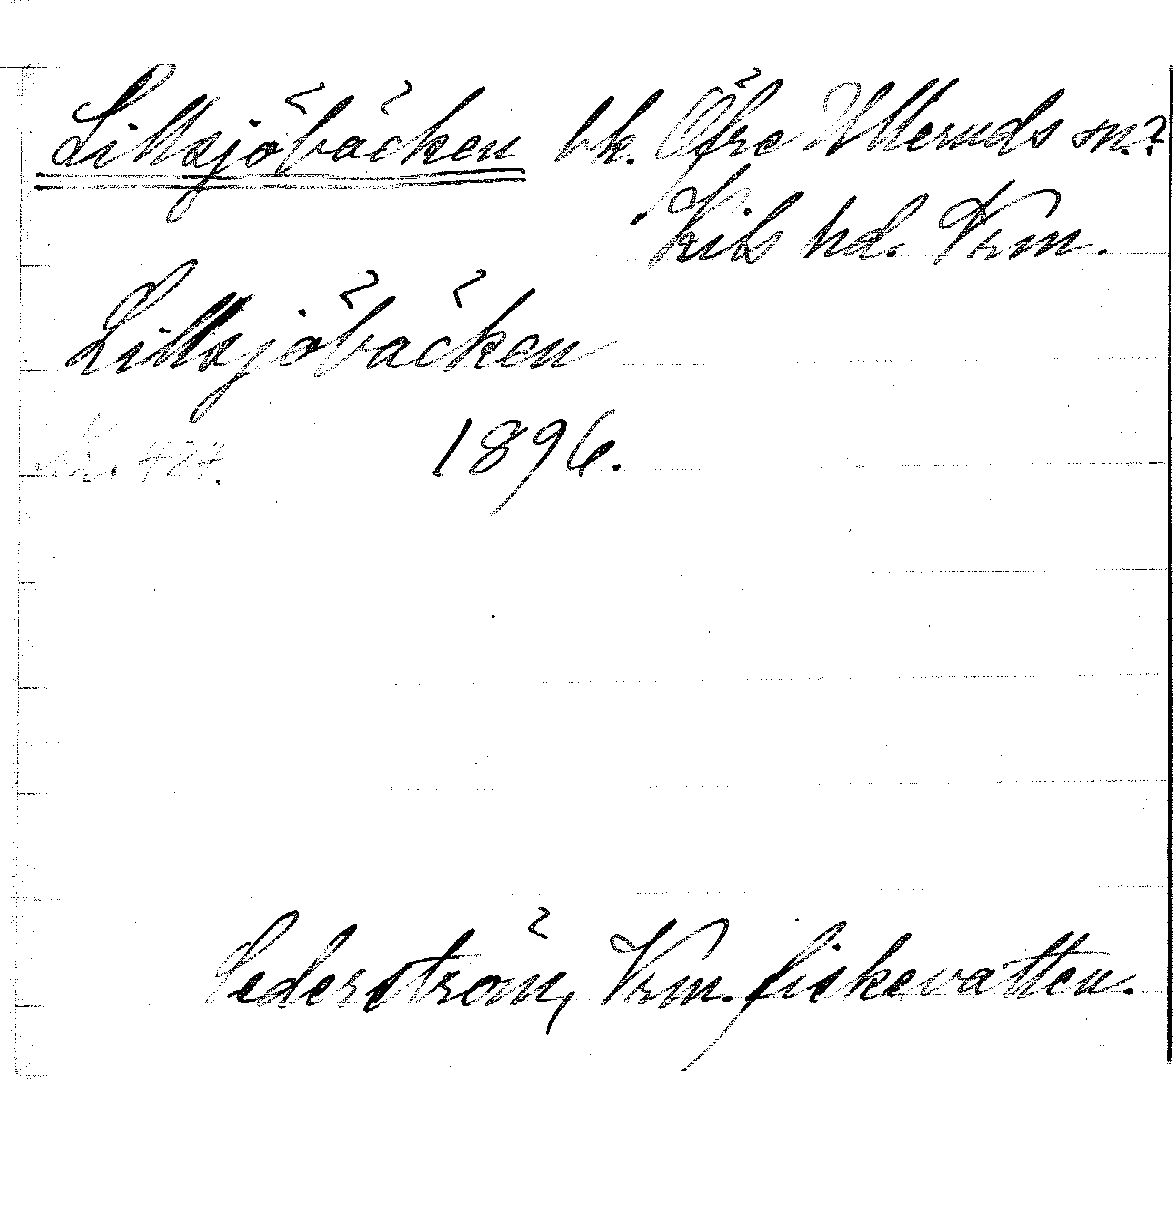 Lillsjöbäcken bk. Öfre Ulleruds sn.?
Kils hd. Vrm.
Lillsjöbäcken
1896.
Cederström, Vrm. fiskevatten.